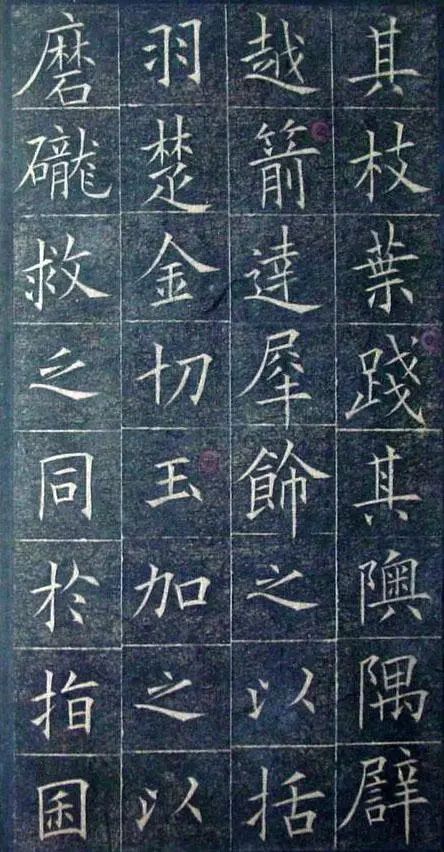 其枝葉踐其隩隅辟
越箭達犀飾之以括
羽楚金切玉加之以
磨礲救之同於指囷